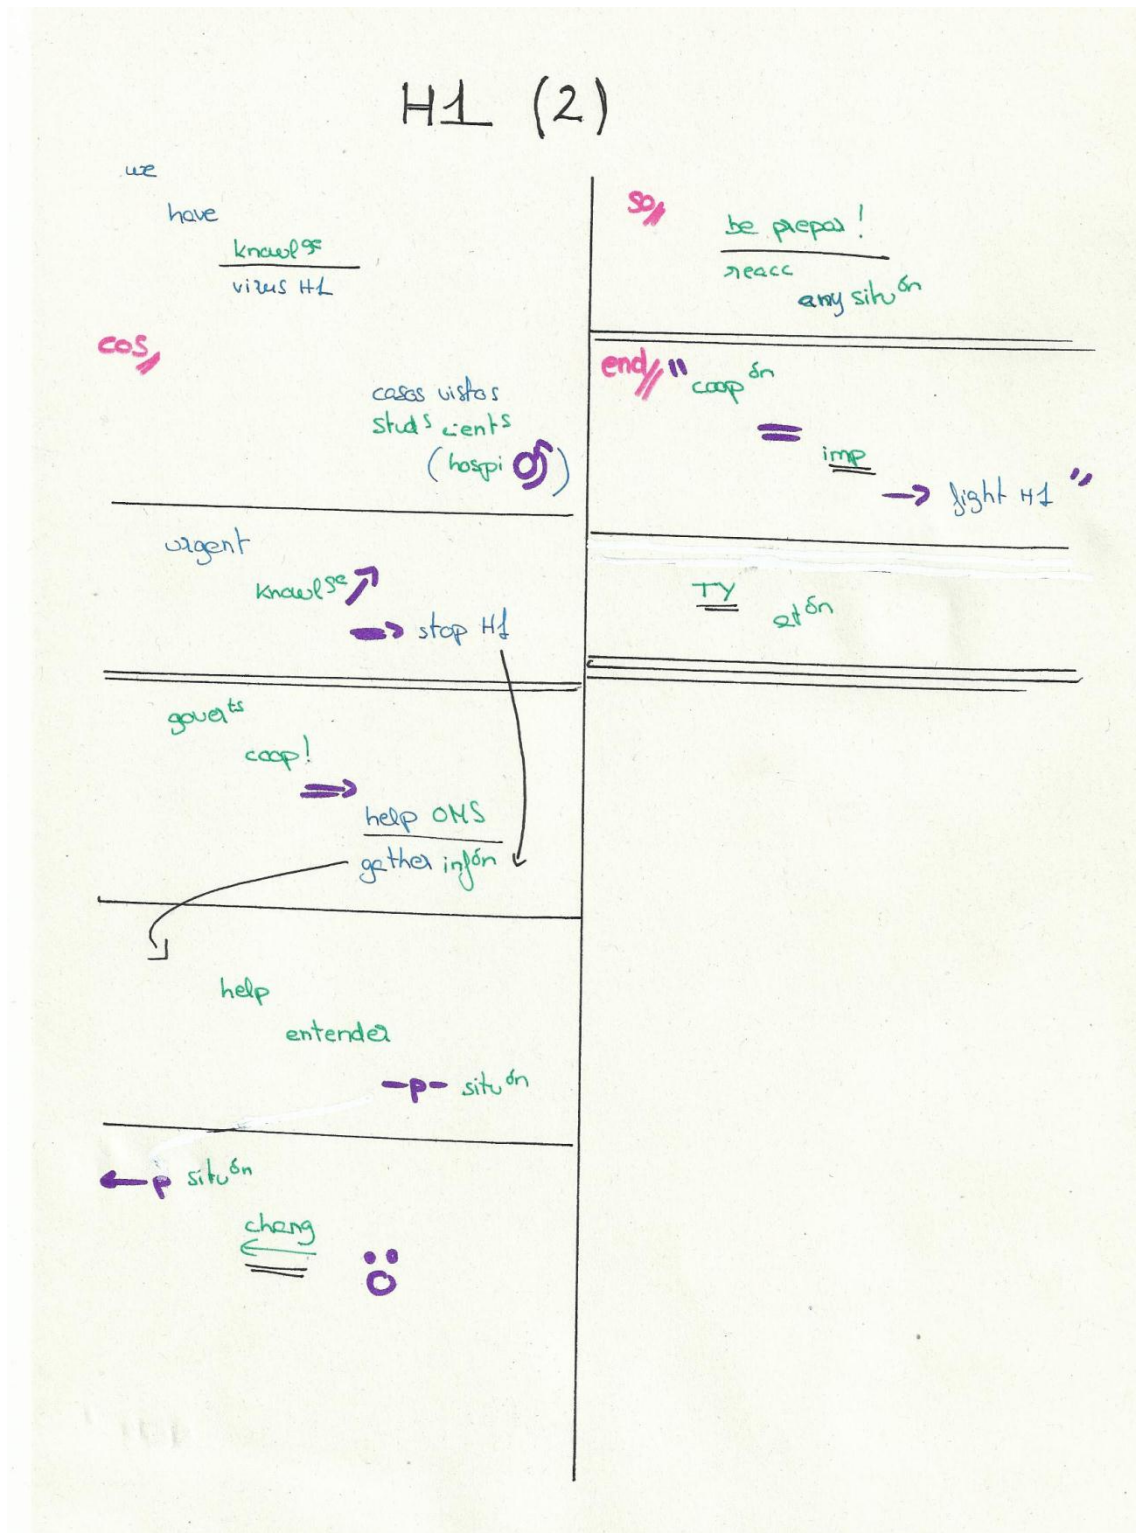 H1 (2)
we
have
knowl ge
virus H1
cos
casos vistos
stud s cient s
(hospi )
urgent
knowl ge
stop H1
governts
coop!
help OMS
gather infón
help
entender
-p- situ ón
p situ ón
chang
so
be prepar!
reacc
any situ ón
end " coop ón
=
imp
→ fight H1 "
TY
at ón